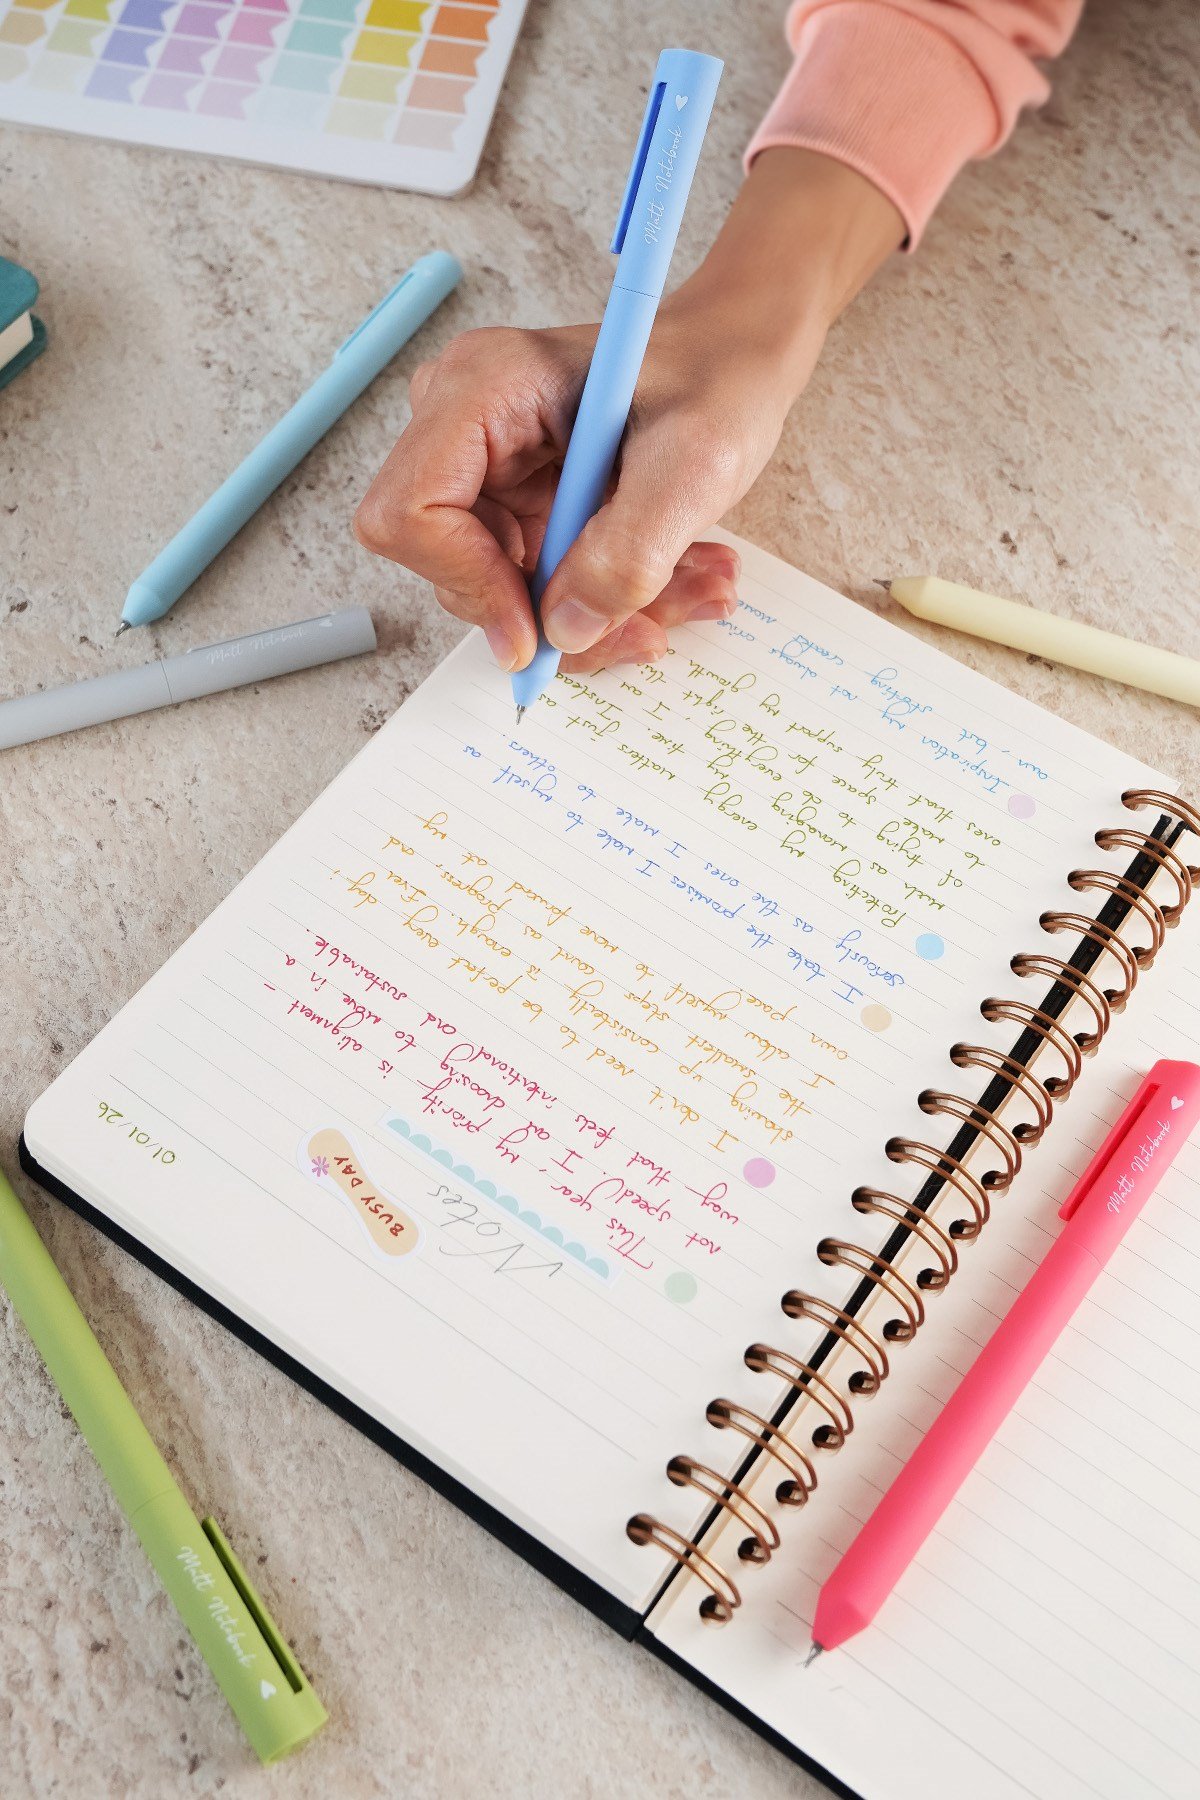 01/01/26
BUSY DAY
Notes
This year, my priority is alignment –
not speed. I'm choosing to move in a
way that feels intentional and sustainable.
I don't need to be perfect every day;
showing up consistently is enough. Even
the smallest steps count as progress and
I allow myself to move forward at my
own pace.
I take the promises I make to myself as
seriously as the ones I make to others.
Protecting my energy matters just as
much as managing my time. Instead
of trying to do everything, I'm
to make space for the right
ones that truly support my growth
Inspiration may not always arrive
own, but starting creates
Matt Notebook
Matt Notebook
Matt Notebook
Matt Notebook